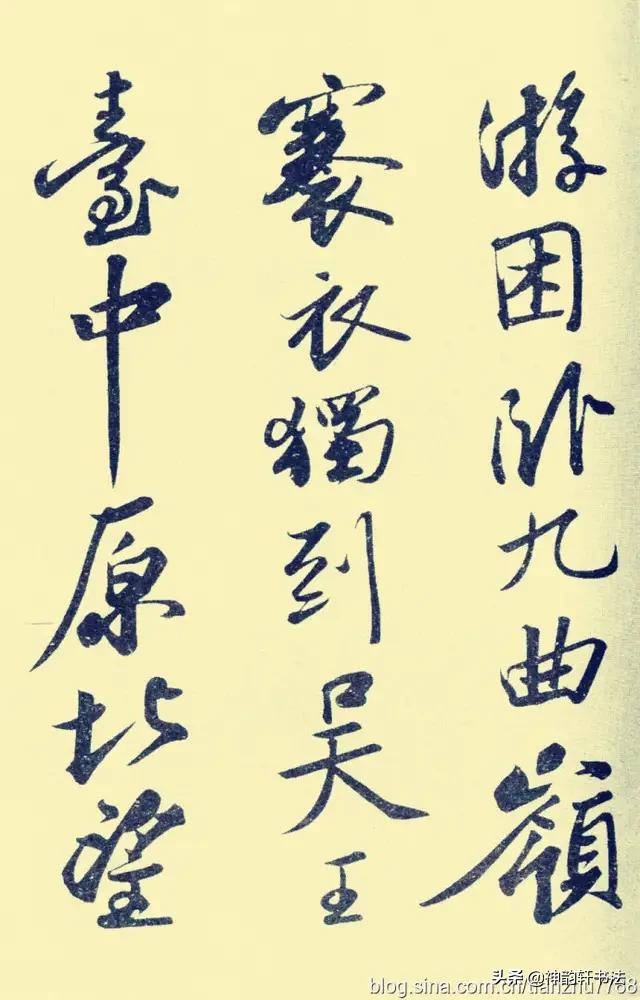 游困卧九曲嶺
褰衣獨到吳王
臺中原北望
头条@神韵轩书法
blog.sina.com.cn/tianzhu7768